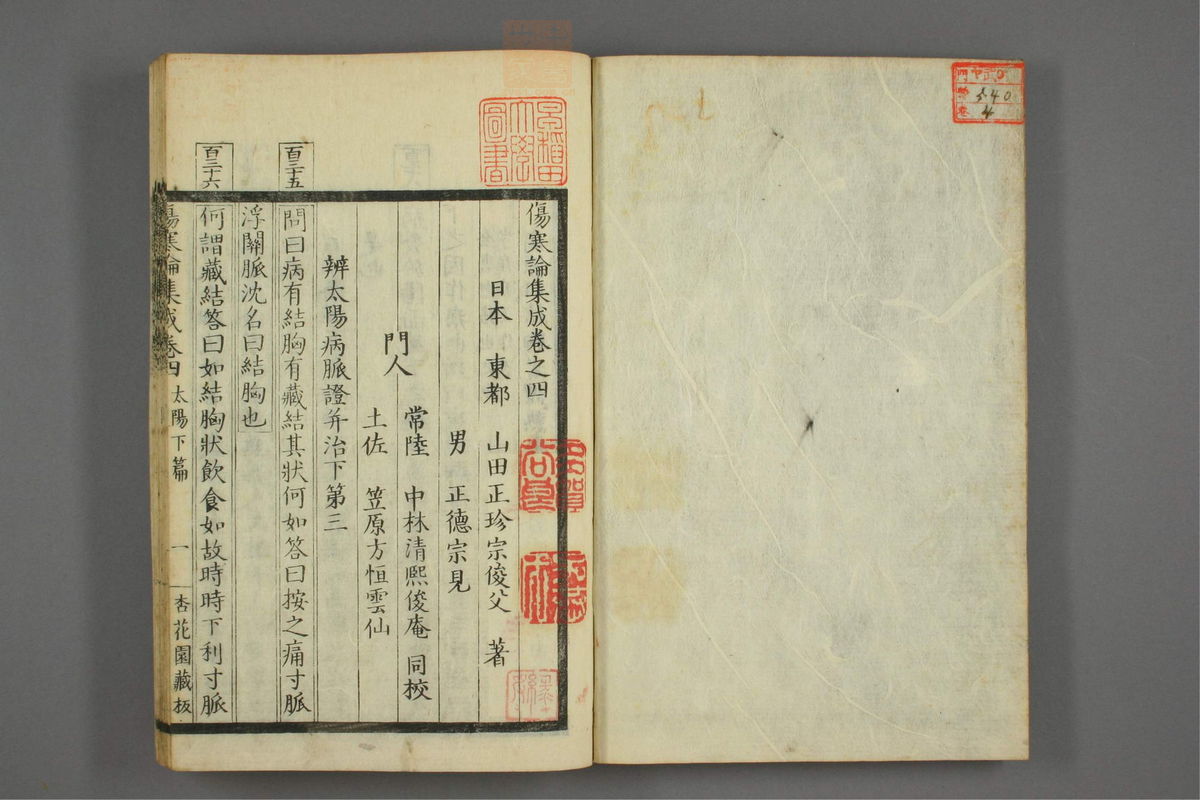 傷寒論集成卷之四
日本 東都 山田正珍宗俊父 著
男 正德宗見
門人
常陸 中林清熙俊庵 同挍
土佐 笠原方恒雲仙
辨太陽病脈證并治下第三
百三十五
問曰病有結胸有藏結其狀何如答曰按之痛寸脈
浮關脈沈名曰結胸也
百三十六
何謂藏結答曰如結胸狀飲食如故時時下利寸脈
傷寒論集成卷四 太陽下篇 一 杏花園藏板
早稻田大學圖書
540
4